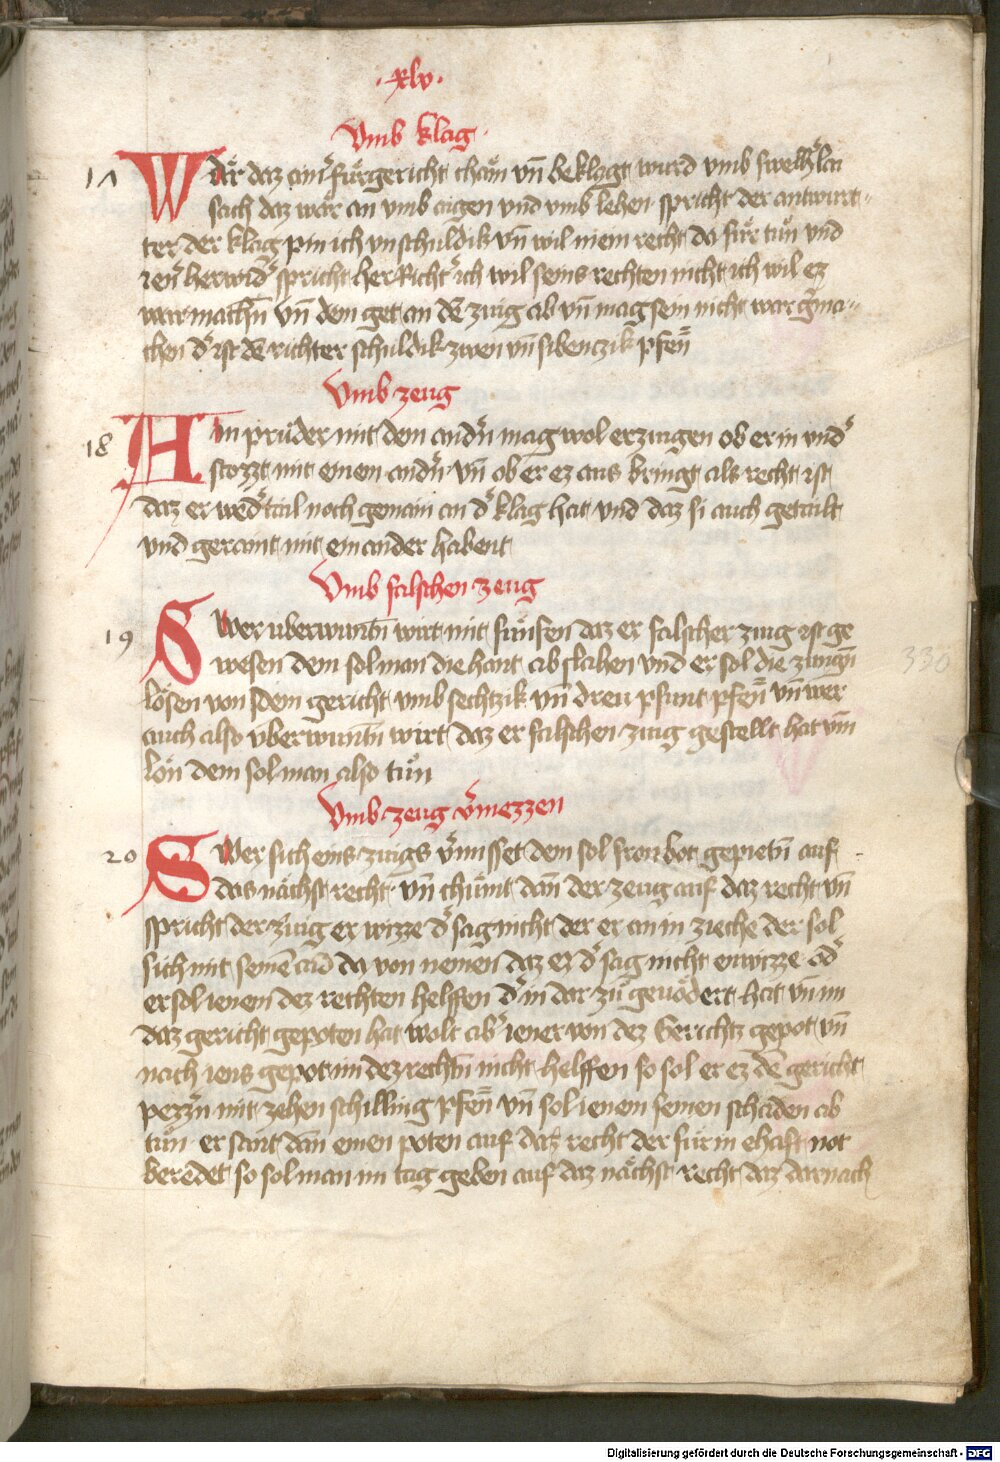 ·xlv·
Vmb klag·
17 Wär daz ainˢ fürgericht chäm vn̄ beklagt wurd vmb swelhˢlai
sach daz wär an vmb aigen vnd vmb lehen· spricht der antwurt⸗
ter der klag pin ich vnschuldik vn̄ wil niem recht da für tůn vnd
ienˢ herwidˢ spricht her Richtˢ ich wil seins rechten nicht ich wil ez
war mach̄n vn̄ dem get an dē zuig ab vn̄ mag sein nicht war gˢma⸗
chen dˢ ist dē richter schuldik zwen vn̄ sibenczik pfen̄
Vmb zeug
18 Ain průder mit dem andˢn mag wol erzeugen ob er in vndˢ
stozzt mit einem andˢn vn̄ ob er ez aus bringt als recht ist
daz er wedˢ tail noch gemain an dˢ klag hat vnd daz si auch getailt
vnd geraint mit einander habent
Vmb falschen zeug
19 Swer vberwunt̄n wirt mit fünfen daz er falscher zuig ist ge
wesen dem sol man die hant ab slahen vnd er sol die zungen
lösen von dem gericht vmb sechtzik vn̄ dreu pfunt pfen̄ vn̄ wer
auch also vberwunt̄n wirt daz er falschen zuig gestellt hat vm
lön dem sol man also tůn
Vmb zeug vˢmezzen
20 Swer sich eins zuigs vˢmisset dem sol fronbot gepiet̄n auf
das nächst recht· vn̄ chümt dan̄ der zeug auf daz recht vn̄
spricht der zuig er wizze dˢ sag nicht der er an in zieche der sol
sich mit seinē aid da von nemen daz er dˢ sag nicht enwizze odˢ
er sol ienem dez rechten helffen dˢ in dar zů geuodert hat vn̄ im
daz gericht gepoten hat wolt abˢ iener von dez Gerichtz gepot vn̄
nach iens gepot im dez recht̄n nicht helffen so sol er ez dē gericht
pezzˢn mit zehen schilling pfen̄ vn̄ sol ienem seinen schaden ab
tůn· er sant dan̄ einen poten auf daz recht der für in ehaft not
beredet so sol man im tag geben auf daz nächst recht daz darnach
330
Digitalisierung gefördert durch die Deutsche Forschungsgemeinschaft - DFG